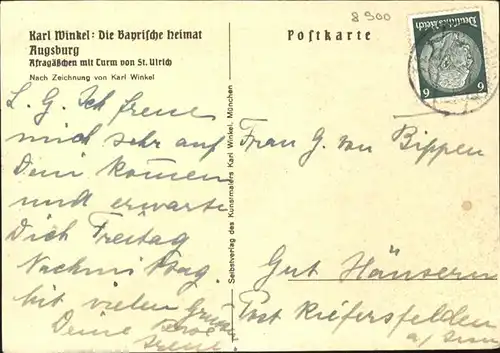 Karl Winkel: Die Bayrische Heimat
Augsburg
Afragäßchen mit Turm von St. Ulrich
Nach Zeichnung von Karl Winkel
8 900
Postkarte
Deutsches Reich
6 6
L. G. Ich freue
mich sehr auf
Dein kommen
und erwarte
Dich Freitag
Nachmittag.
Mit vielen Grüßen
Deine
Irene
Selbstverlag des Kunstmalers Karl Winkel, München
Frau G. von Bippen
Gut Hänsern
Post Kiefersfelden
a/Inn